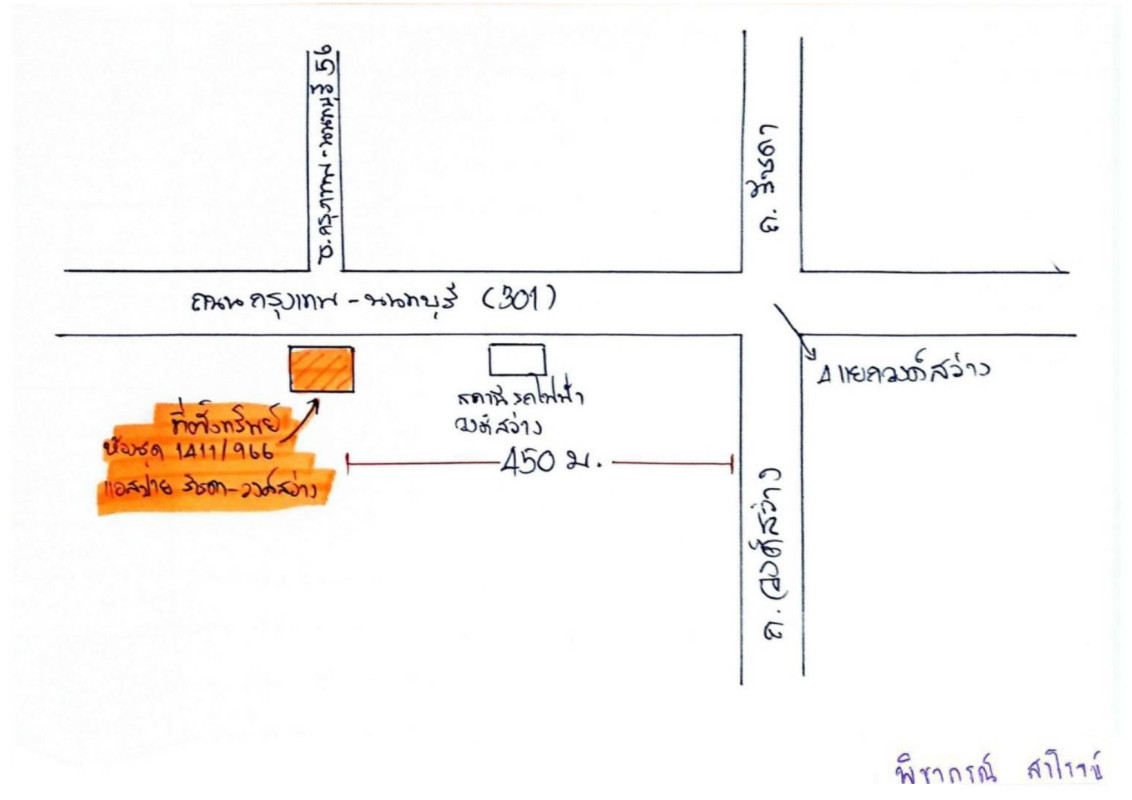 ซ.กรุงเทพ-นนทบุรี 56
ถ. รัชดา
ถนน กรุงเทพ - นนทบุรี (301)
4 แยกวงศ์สว่าง
สถานีรถไฟฟ้า
วงศ์สว่าง
ที่ตั้งทรัพย์
ห้องชุด 1411/966
แอสปาย รัชดา-วงศ์สว่าง
450 ม.
ถ. วงศ์สว่าง
พิชาภรณ์